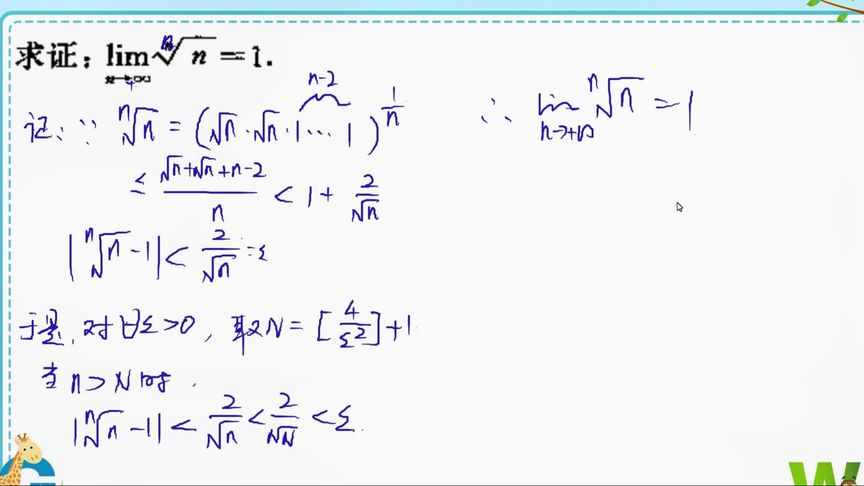 求证: lim n→∞ ⁿ√n = 1.
证: ∵ ⁿ√n = (√n · √n · 1 ⋯ 1)^(1/n)
n-2
≤ (√n+√n+n-2)/n < 1 + 2/√n
|ⁿ√n - 1| < 2/√n = ε
于是, 对∀ε>0, 取N = [4/ε²]+1
当 n > N 时,
|ⁿ√n - 1| < 2/√n < 2/√N < ε
∴ lim n→+∞ ⁿ√n = 1
W